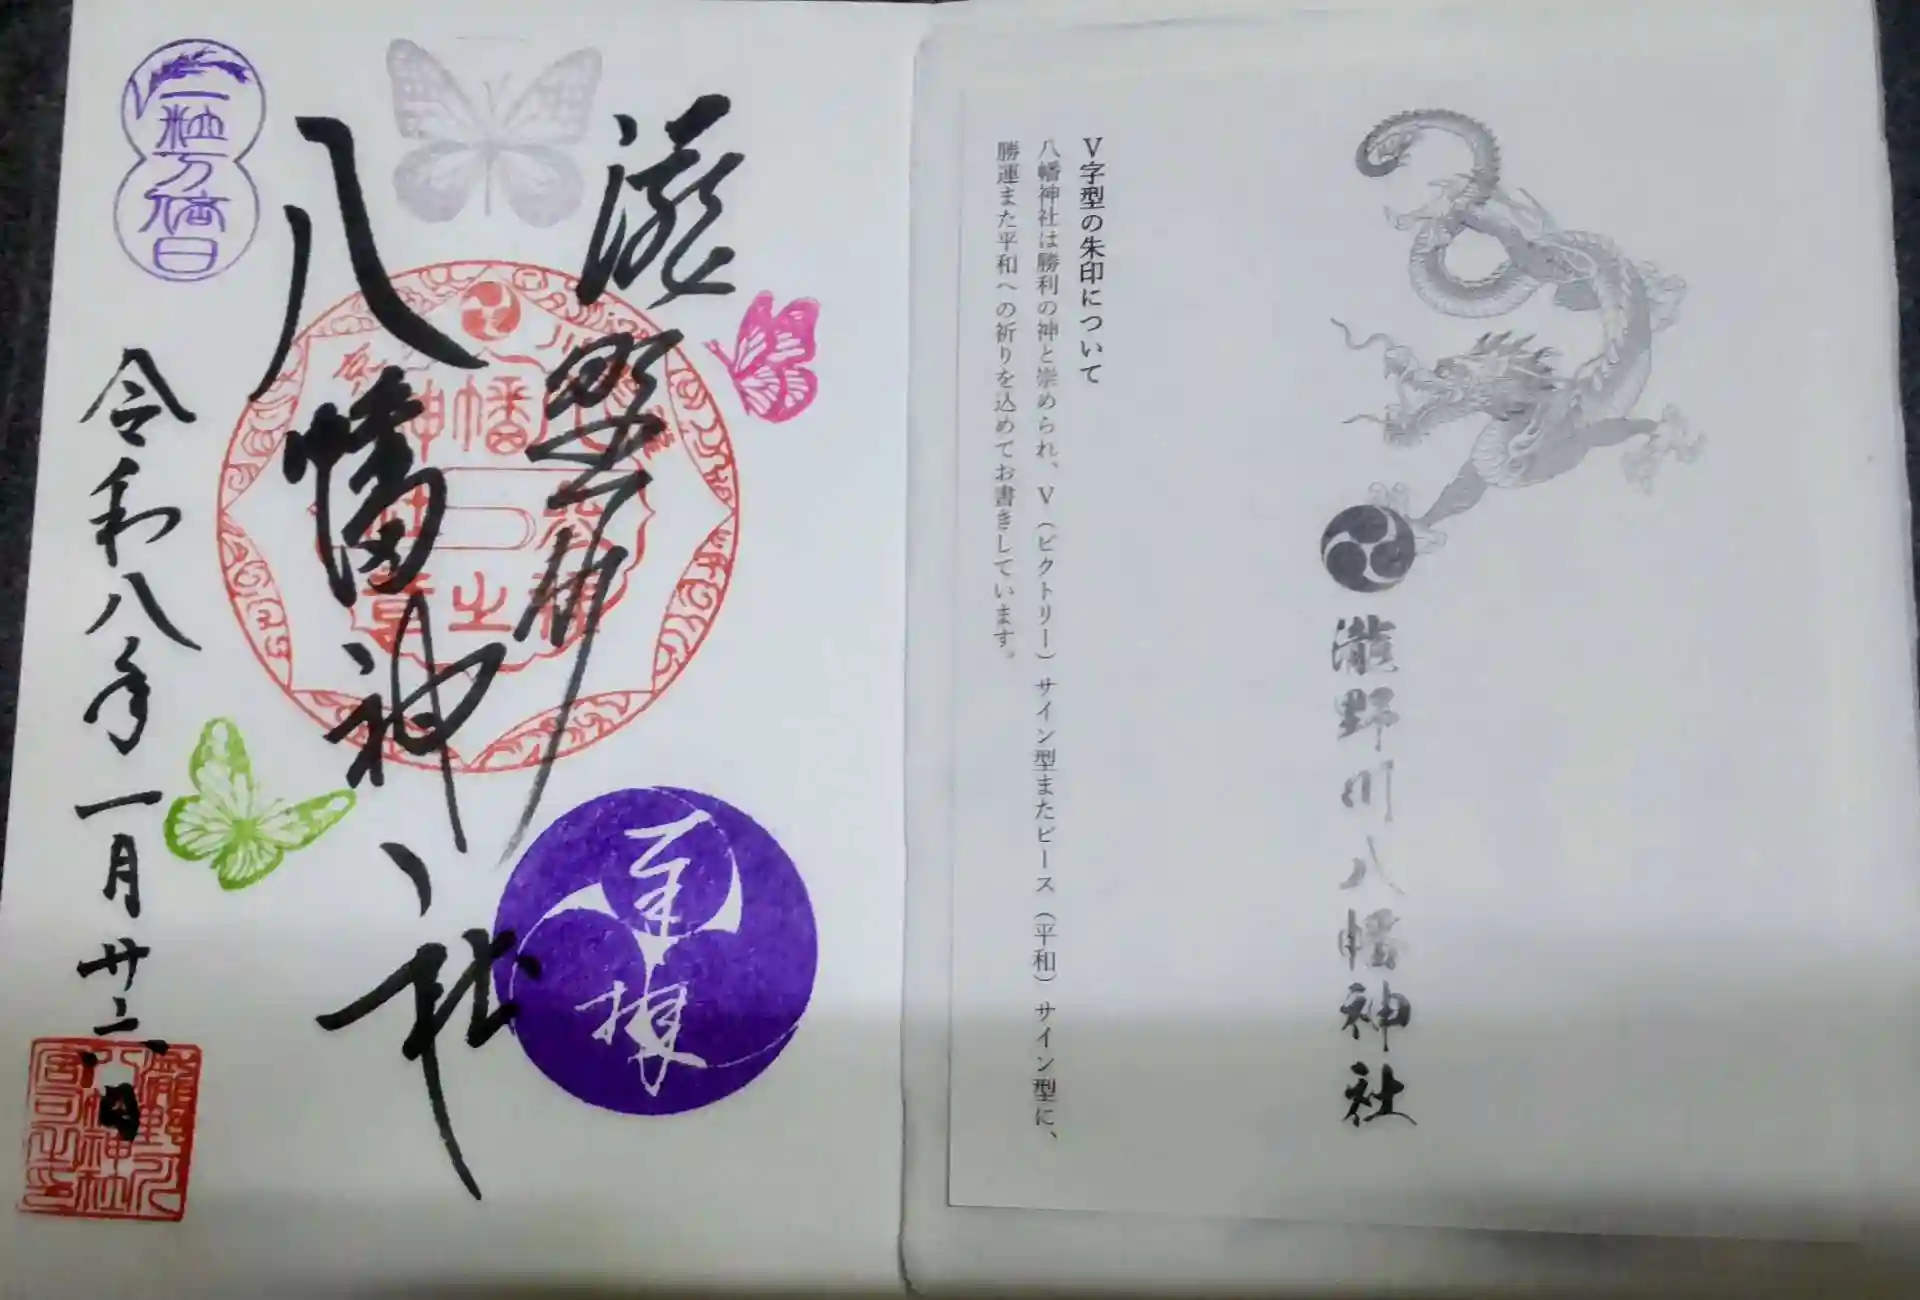 V字型の朱印について
八幡神社は勝利の神と崇められ、V（ビクトリー）サイン型またピース（平和）サイン型に、
勝運また平和への祈りを込めてお書きしています。
瀧野川八幡神社
瀧野川
八幡神社
令和八年一月廿二日
一粒万倍日
奉拝
瀧野川
八幡神社
宮司之印